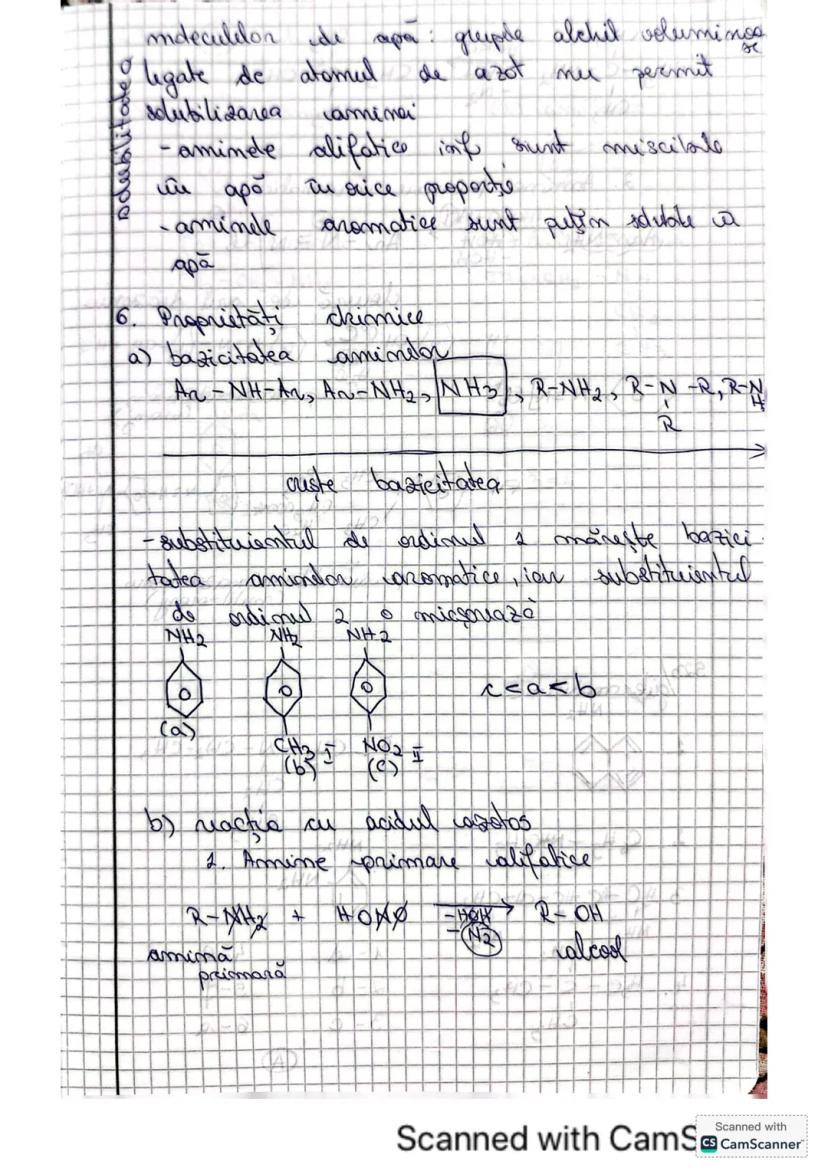 moleculelor de apă: grupele alchil voluminoa
se
legate de atomul de azot nu permit
solubilizarea aminei
- aminele alifatice inf sunt miscibile
cu apă în orice proporție
- aminele aromatice sunt puțin solubile în
apă
solubilitatea
6. Proprietăți chimice
a) bazicitatea aminelor
Ar - NH - Ar, Ar - NH2, NH3, R-NH2, R-N-R, R-N
R
H
crește bazicitatea
- substituientul de ordinul 1 mărește bazici
tatea aminelor aromatice, iar substituientul
de ordinul 2 o micșorează
NH2 NH2 NH2
c < a < b
(a)
CH3 I NO2 II
(b) (c)
b) reacția cu acidul azotos
1. Amine primare alifatice
R-NH2 + HONO -HOH → R-OH
-N2
amină alcool
primară
Scanned with CamS
Scanned with
CS CamScanner